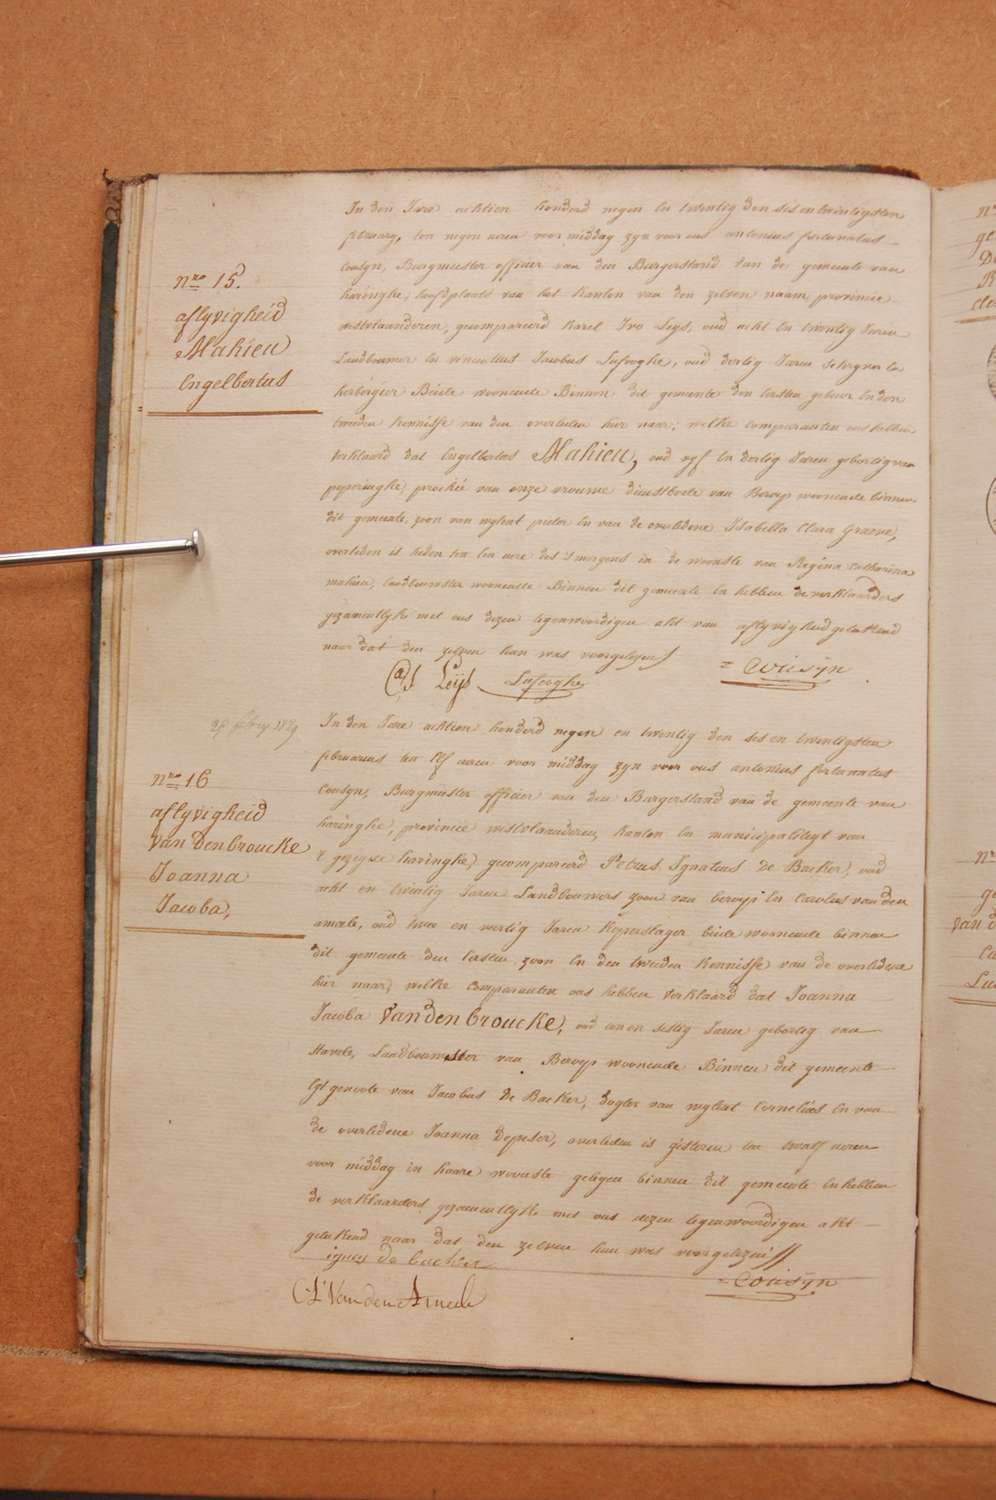 nro 15.
aflyvigheid
Mahieu
Engelbertus
In den Jare achtien honderd negen en twintig den ses en twintigsten
february, ten negen uren voor middag zyn voor ons antonius fortunatus
Cousyn, Burgmeester officier van den Burgerstand van de gemeente van
haringhe, hoofdplaats van het kanton van den zelven naam, provincie
westvlaanderen, gecompareerd Karel Ivo Leys, oud acht en twintig Jaren
Landbouwer en vincentius Jacobus Lafeoghe, oud dertig Jaren
herbergier Beide woonende Binnen dit gemeente den eersten gebuer en den
tweeden kennisse van den overleden hier naer; welke comparanten ons hebben
verklaard dat Engelbertus Mahieu, oud vyf en dertig Jaren geboortig van
poperinghe, prochie van onze vrouwe dienstbode van Beroep woonende binnen
dit gemeente, zoon van wylent pieter en van de overledene Isabella Clara Graeve,
overleden is heden ten een ure des 's morgens in de woonste van Regina Catharina
mahieu, landbouwster woonende Binnen dit gemeente en hebben de verklaarders
gezamentlyke met ons dezen tegenwoordigen akt van aflyvigheid geteekend
naer dat den zelven hun was voorgelezen
= Cousyn
Leys Lafeoghe
26 febry. 1829
nro 16
aflyvigheid
Van Denbroucke
Joanna
Jacoba,
In den Jare achtien honderd negen en twintig den ses en twintigsten
februarius ten elf uren voor middag zyn voor ons antonius fortunatus
Cousyn, Burgmeester officier van den Burgerstand van de gemeente van
haringhe, provincie westvlaanderen, kanton en municipaliteyt van
gezeyde haringhe, gecompareerd Petrus Ignatius de Backer, oud
acht en twintig Jaren Landbouwers zoon van beroep en Carolus van den
ameele, oud twee en veertig Jaren Koperslager beide woonende binnen
dit gemeente den eersten zoon en den tweeden kennisse van de overledene
hier naer, welke Comparanten ons hebben verklaard dat Joanna
Jacoba Vandenbroucke, oud een en sestig Jaren geboortig van
Stavele, Landbouwster van Beroep woonende Binnen dit gemeente
Egtgenote van Jacobus de Backer, dogter van wylent Cornelius en van
de overledene Joanna Depester, overleden is gisteren ten twalf uren
voor middag in haare woonste gelegen binnen dit gemeente en hebben
de verklaarders gezamentlyke met ons dezen tegenwoordigen akt
geteekend naer dat den zelven hun was voorgelezen
ignas de backer
= Cousyn
Vanden Ameele